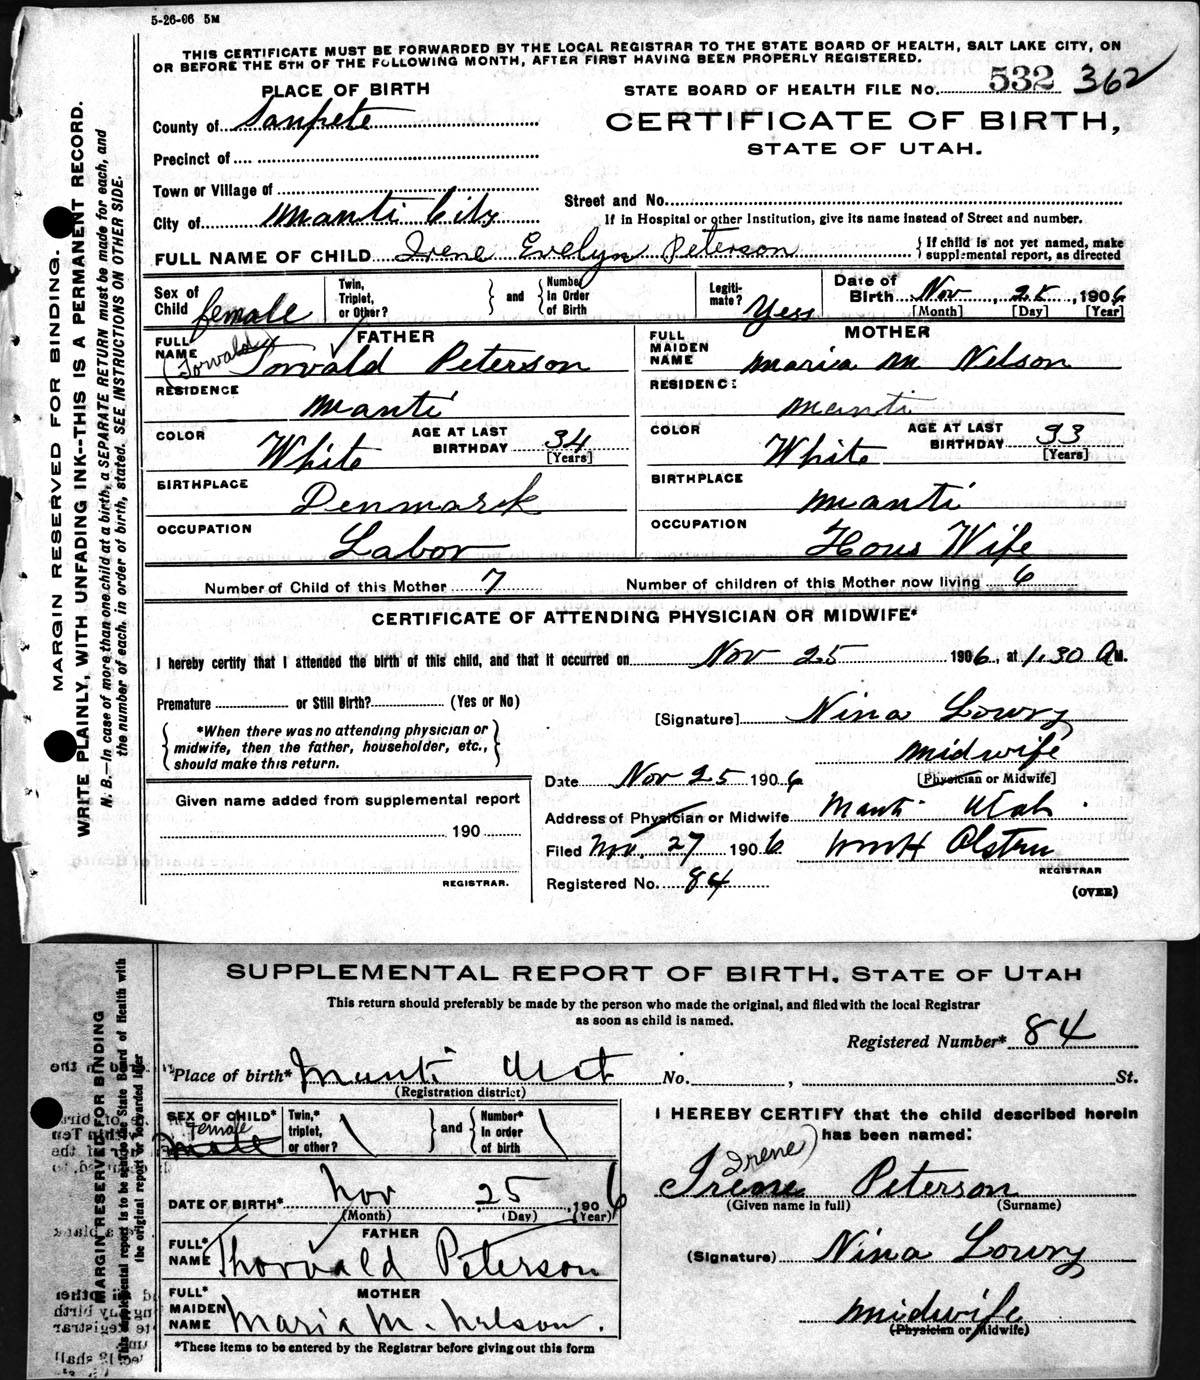 5-26-06 5M
THIS CERTIFICATE MUST BE FORWARDED BY THE LOCAL REGISTRAR TO THE STATE BOARD OF HEALTH, SALT LAKE CITY, ON
OR BEFORE THE 5TH OF THE FOLLOWING MONTH, AFTER FIRST HAVING BEEN PROPERLY REGISTERED.
STATE BOARD OF HEALTH FILE No. 532 362
PLACE OF BIRTH
County of Sanpete
CERTIFICATE OF BIRTH,
STATE OF UTAH.
Precinct of
Town or Village of
Street and No.
City of Manti City
If in Hospital or other Institution, give its name instead of Street and number.
FULL NAME OF CHILD Irene Evelyn Peterson
{If child is not yet named, make
supplemental report, as directed
Sex of Child female
Twin, Triplet, or Other? } and { Number In Order of Birth
Legitimate? Yess
Date of Birth Nov 25, 1906
[Month] [Day] [Year]
FATHER
FULL NAME (Torvald) Torvald Peterson
RESIDENCE
Manti
COLOR White
AGE AT LAST BIRTHDAY 34
[Years]
BIRTHPLACE
Denmark
OCCUPATION
Labor
MOTHER
FULL MAIDEN NAME Maria M Nelson
RESIDENCE:
Manti
COLOR White
AGE AT LAST BIRTHDAY 33
[Years]
BIRTHPLACE
Manti
OCCUPATION
Hous Wife
Number of Child of this Mother 7 Number of children of this Mother now living 6
CERTIFICATE OF ATTENDING PHYSICIAN OR MIDWIFE*
I hereby certify that I attended the birth of this child, and that it occurred on Nov 25 1906, at 1.30 AM.
Premature or Still Birth? (Yes or No)
*When there was no attending physician or
midwife, then the father, householder, etc.,
should make this return.
[Signature] Nina Lowry
midwife
[Physician or Midwife]
Date Nov 25 1906
Address of Physician or Midwife Manti Utah
Filed Nov. 27 1906
REGISTRAR
Registered No. 84
(OVER)
Given name added from supplemental report
190
REGISTRAR.
MARGIN RESERVED FOR BINDING.
WRITE PLAINLY, WITH UNFADING INK--THIS IS A PERMANENT RECORD.
N. B.—In case of more than one child at a birth, a SEPARATE RETURN must be made for each, and
the number of each, in order of birth, stated. SEE INSTRUCTIONS ON OTHER SIDE.
SUPPLEMENTAL REPORT OF BIRTH, STATE OF UTAH
This return should preferably be made by the person who made the original, and filed with the local Registrar
as soon as child is named.
Registered Number* 84
Place of birth* Manti No. , St.
(Registration district)
SEX OF CHILD* Female Male
Twin,* triplet, or other? } and { Number* in order of birth
DATE OF BIRTH* Nov 25, 1906
(Month) (Day) (Year)
FATHER
FULL* NAME Thorvald Peterson
MOTHER
FULL* MAIDEN NAME Maria M. Nelson.
*These items to be entered by the Registrar before giving out this form
I HEREBY CERTIFY that the child described herein
has been named:
Irene)
Irene Peterson
(Given name in full) (Surname)
(Signature) Nina Lowry
midwife
(Physician or Midwife)
MARGIN RESERVED FOR BINDING
This supplemental report is to be sent to the State Board of Health with
the original report or forwarded later